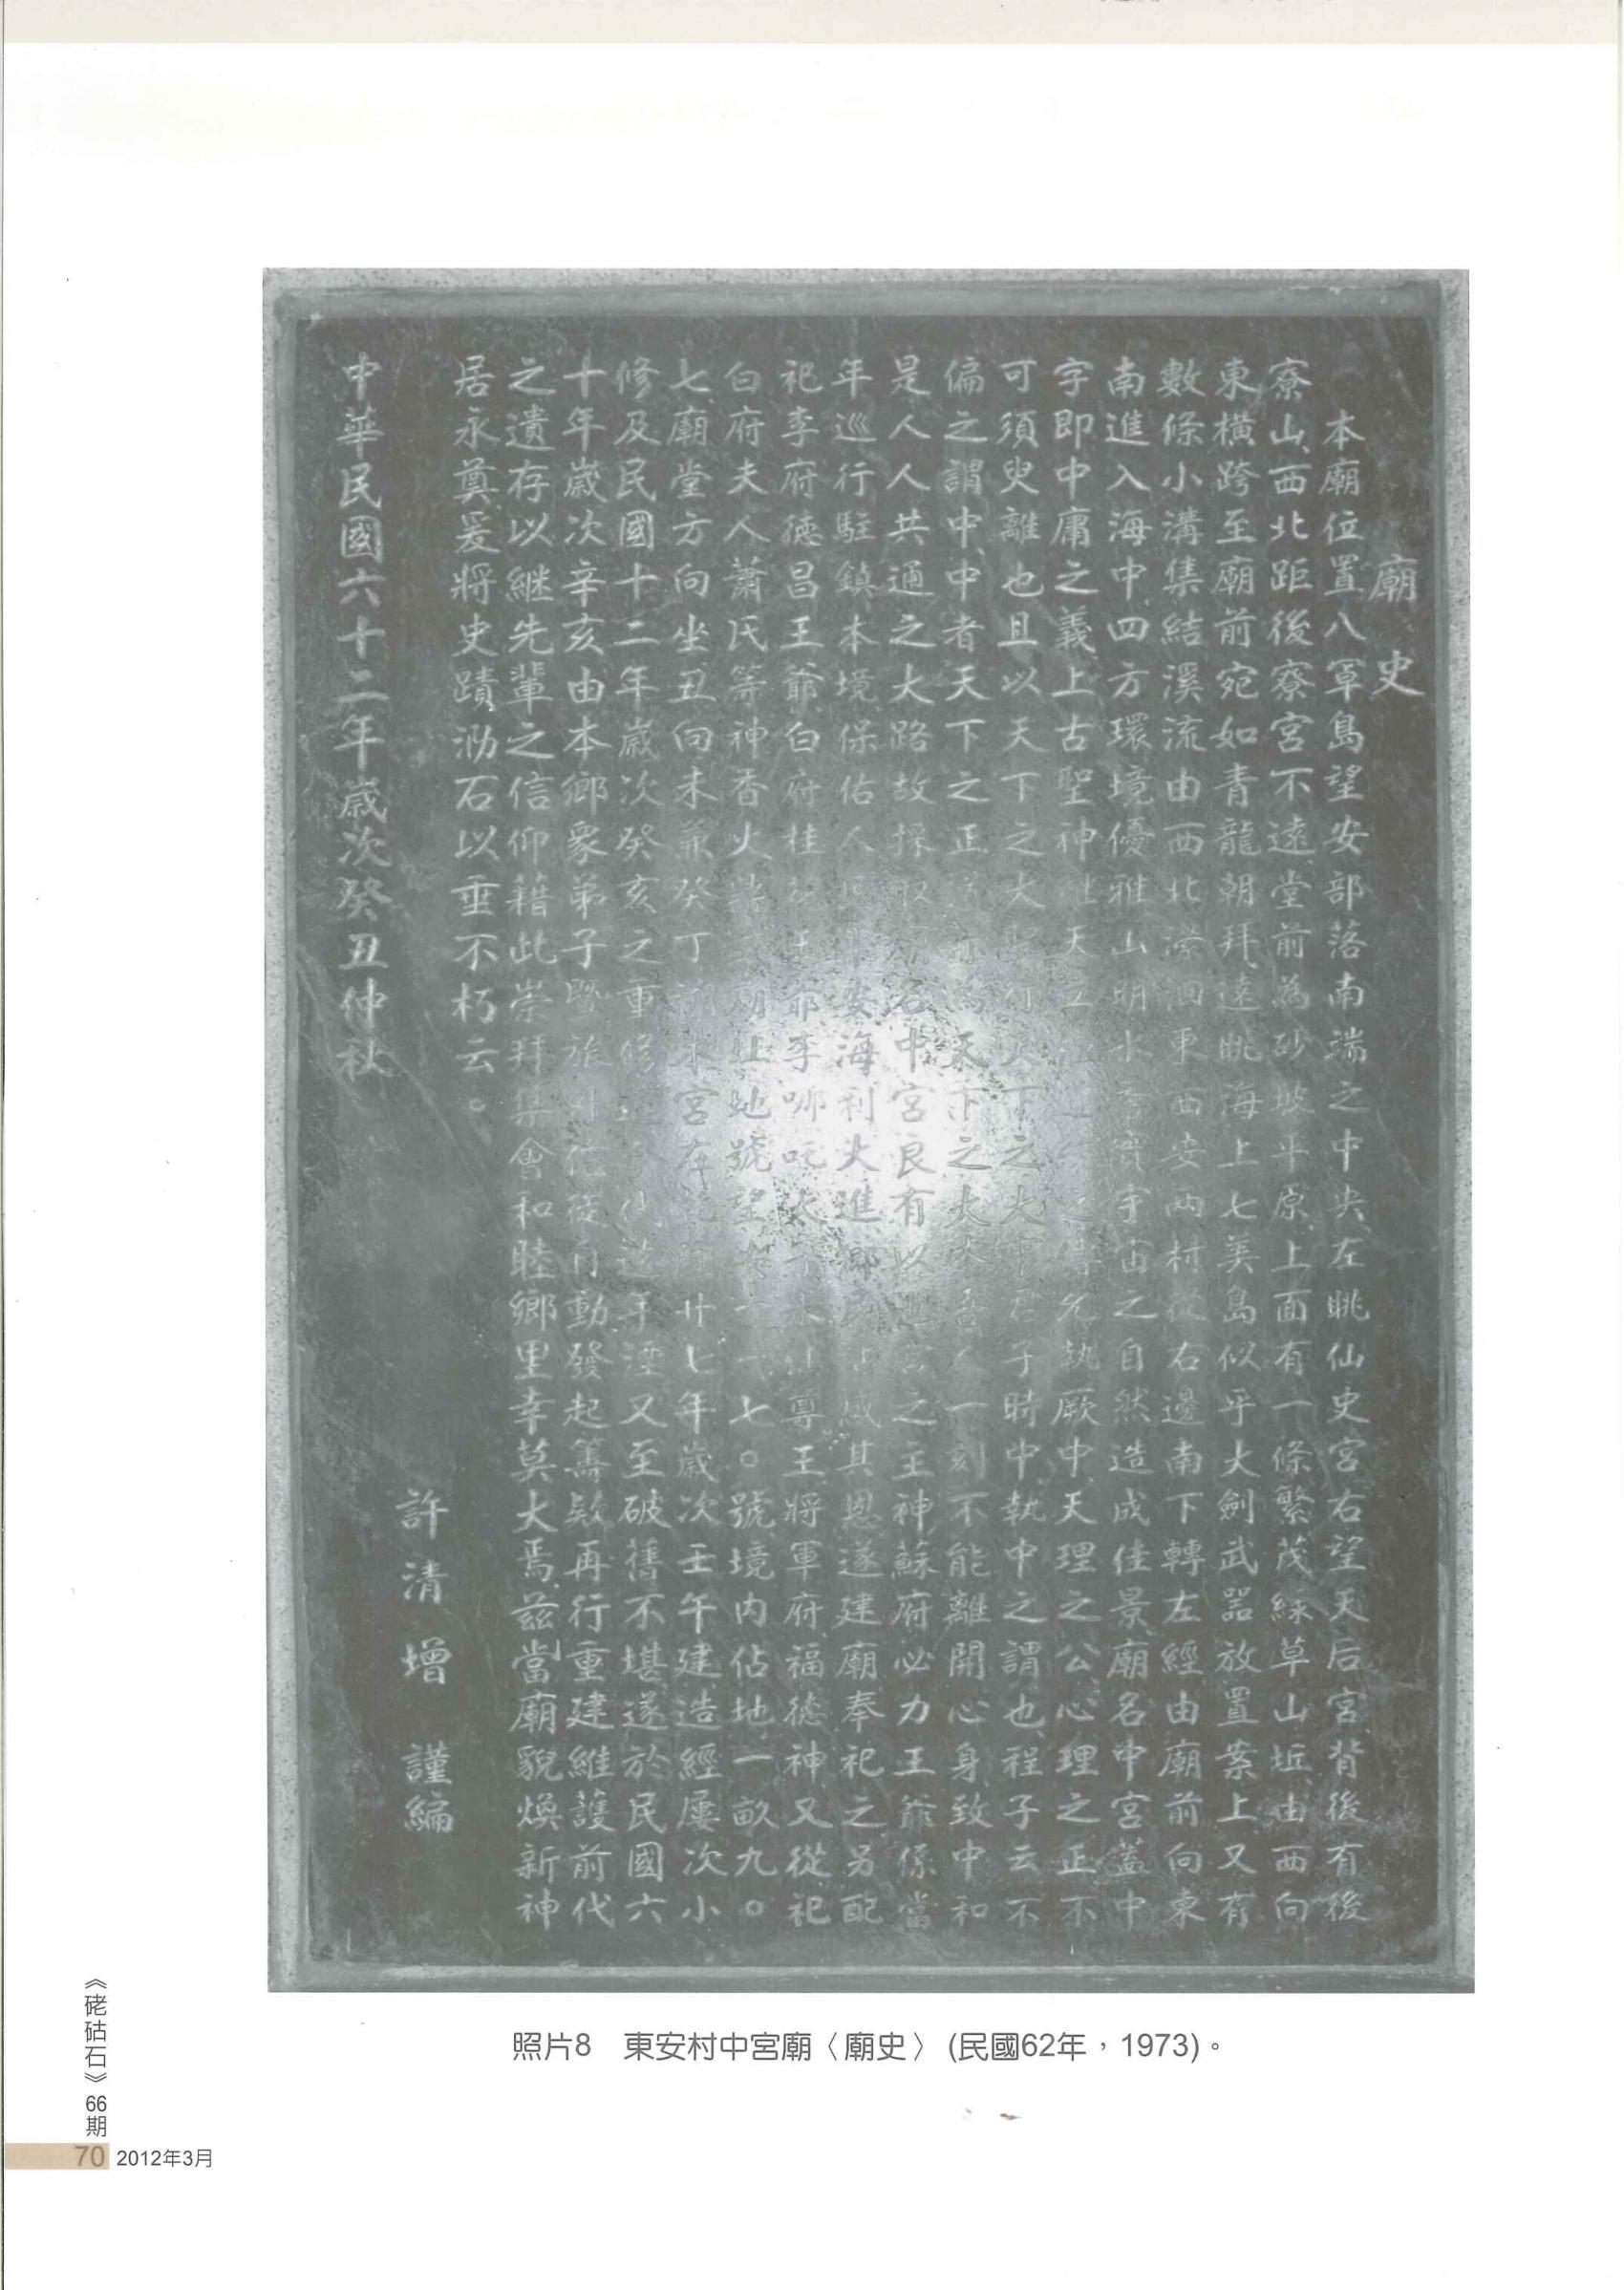 廟史
本廟位置八罩島望安部落南端之中央、左眺仙史宮右望天后宮、背後有後
寮山、西北距後寮宮不遠、堂前為砂坡平原、上面有一條繁茂綠草山坵、由西向
東橫跨至廟前宛如青龍朝拜、遠眺海上七美島似乎大劍武器放置案上又有
數條小溝集結溪流由西北瀠洄東西安兩村從右邊南下轉左經由廟前向東
南進入海中、四方環境優雅山明水秀實宇宙之自然造成佳景、廟名中宮蓋中
字即中庸之義、上古聖神繼天立允執厥中、天理之公、心理之正不
可須臾離也且以天下之大天下之大子時中、執中之謂也、程子云不
偏之謂中、中者天下之正天下之大一刻不能離開心身、致中和
是人人共通之大路故採取名中宮良有以之主神蘇府必力王爺係當
年巡行駐鎮本境保佑人安海利大進其恩遂建廟奉祀之另配
祀李府德昌王爺白府桂王爺李哪吒太尊王將軍府、福德神又從祀
白府夫人蕭氏等神香火地號望一七〇號境內佔地一畝九〇
七、廟堂方向坐丑向未兼癸丁本宮在廿七年歲次壬午建造經屢次小
修及民國十二年歲次癸亥之重修年湮又至破舊不堪遂於民國六
十年歲次辛亥由本鄉眾弟子暨旅外信徒自動發起籌款再行重建維護前代
之遺存以継先輩之信仰藉此崇拜集會和睦鄉里幸莫大焉、茲當廟貌煥新神
居永奠爰將史蹟泐石以垂不朽云。
許清增謹編
中華民國六十二年歲次癸丑仲秋
照片8　東安村中宮廟〈廟史〉(民國62年，1973)。
《硓𥑮石》66期
70 2012年3月